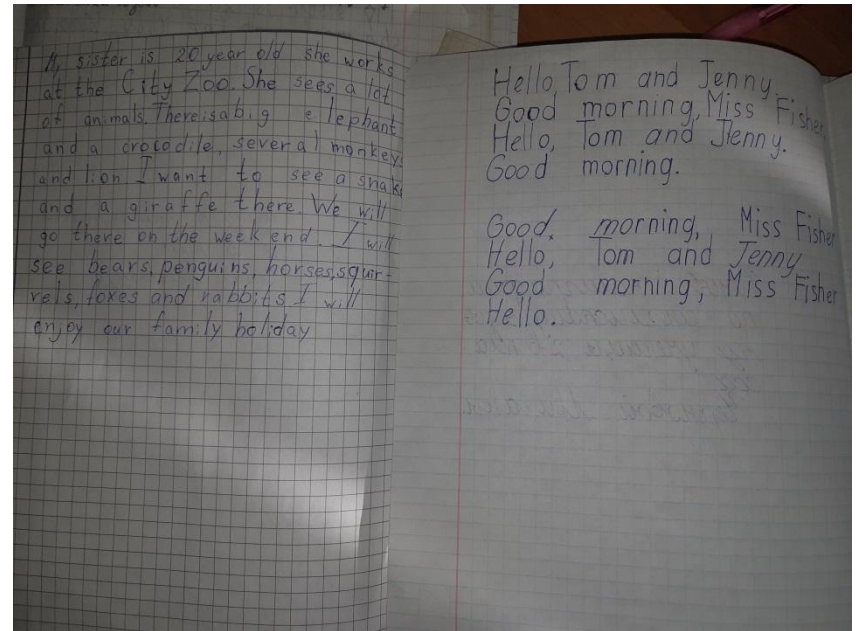 My sister is 20 year old she works
at the City Zoo. She sees a lot
of animals. There is a big elephant
and a crocodile, several monkeys
and lion I want to see a snake
and a giraffe there. We will
go there on the week end. I will
see bears, penguins, horses, squir-
rels, foxes and rabbits. I will
enjoy our family holiday
Hello, Tom and Jenny.
Good morning, Miss Fisher.
Hello, Tom and Jenny.
Good morning.
Good. morning, Miss Fisher
Hello, Tom and Jenny
Good morning, Miss Fisher
Hello.